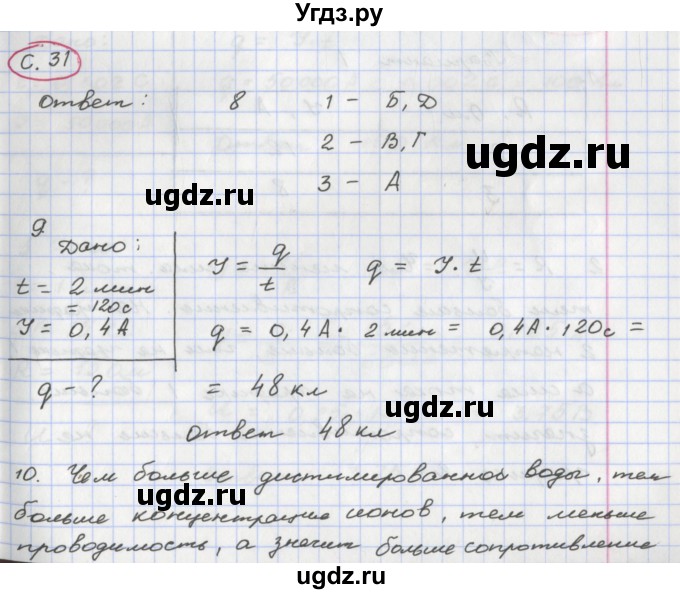 Угдз.ру
с. 31
ответ: 8 1 - Б, Д
2 - В, Г
ugdz.ru
3 - А
ugdz.ru
9
Дано:
t = 2 мин
= 120с
У = 0,4А
q - ?
У = q/t q = У · t
q = 0,4А · 2 мин = 0,4А · 120с =
= 48 кл
ugdz.ru
Ответ 48 кл
10. Чем больше дистимированной воды, тем
ugdz.ru
больше концентрацие ионов, тем меньше
проводимость, а значит больше сопротивление
ugdz.ru